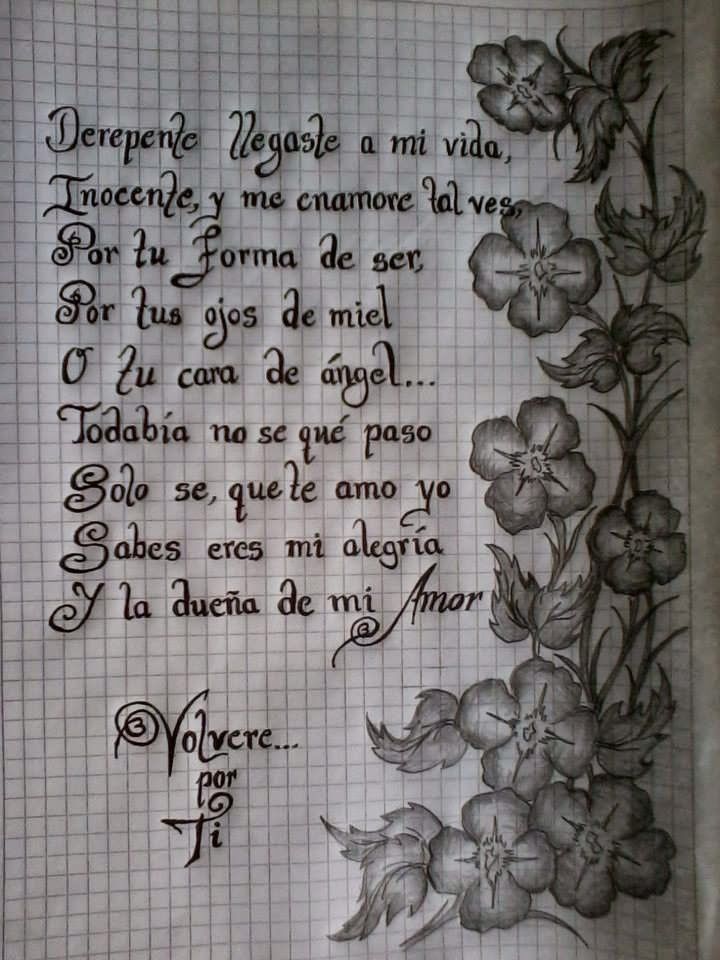 Derepente llegaste a mi vida,
Inocente, y me enamore tal ves,
Por tu forma de ser,
Por tus ojos de miel
O tu cara de ángel...
Todabía no se qué paso
Solo se, que te amo yo
Sabes eres mi alegría
Y la dueña de mi Amor
Volvere...
por
Ti